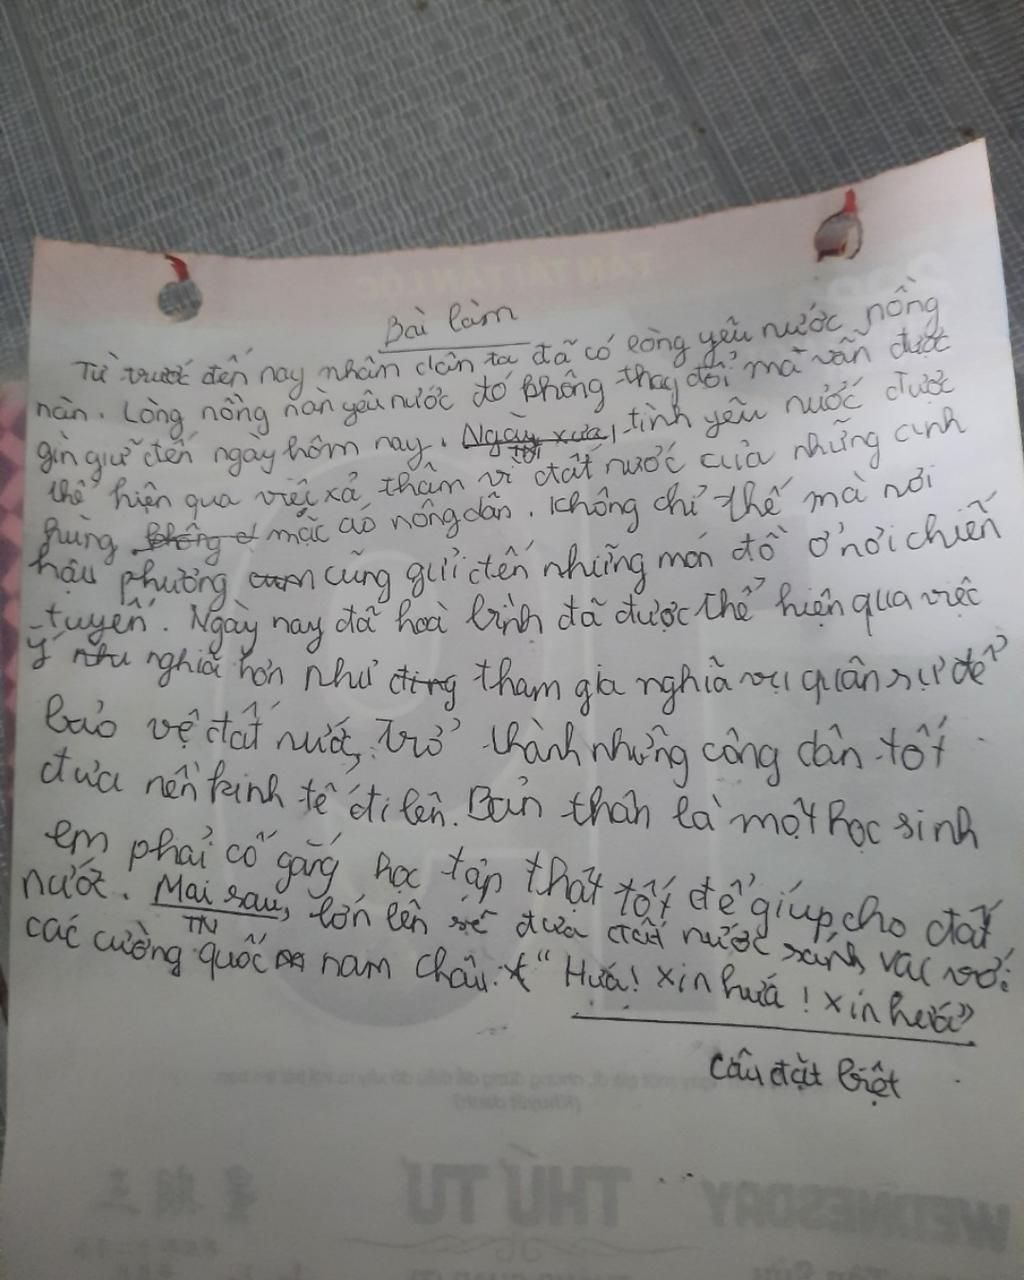 TẤN TÀI TẤN LỘC
Bài làm
Từ trước đến nay nhân dân ta đã có lòng yêu nước nồng
nàn. Lòng nồng nàn yêu nước đó không thay đổi mà vẫn được
gìn giữ đến ngày hôm nay. Ngày xưa, tình yêu nước được
thể hiện qua việc xả thâm vì đất nước của những anh
hùng không mặc áo nông dân. Không chỉ thế mà nơi
hậu phương cũng gửi đến những món đồ ở nơi chiến
tuyến. Ngày nay đã hoà bình đã được thể hiện qua việc
ý nghiã hơn như tham gia nghĩa vụ quân sự để
bảo vệ đất nước, trở thành những công dân tốt
đưa nền kinh tế đi lên. Bản thân là một học sinh
em phải cố gắng học tập thật tốt để giúp cho đất
nước. Mai sau, lớn lên sẽ đưa đất nước sánh vác với
TN
các cường quốc nam châu. "Hứa! Xin hứa! Xin hứa"
câu đặt biệt
THỨ TƯ
WEDNESDAY
星期三